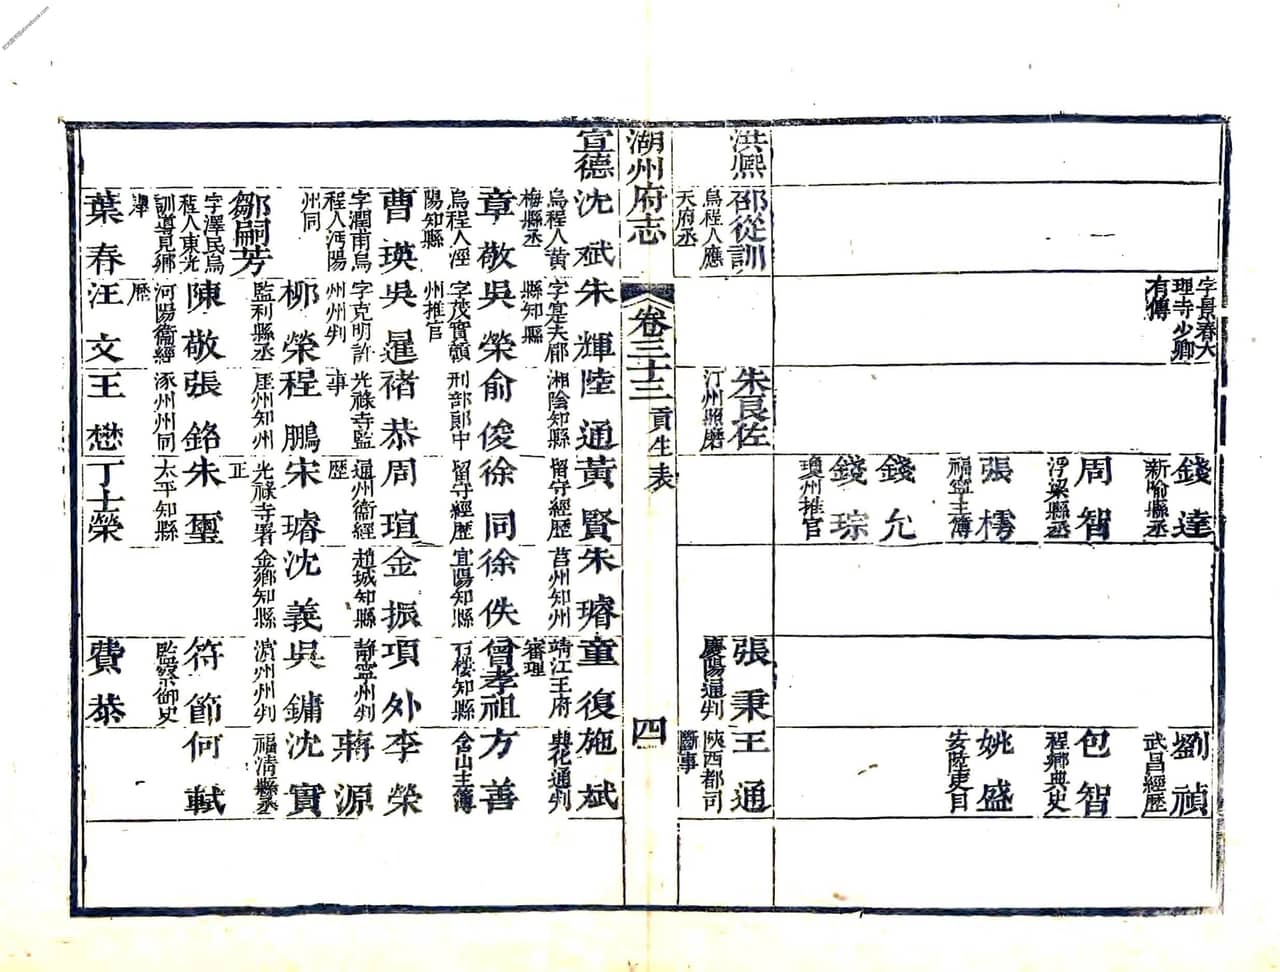 字景春大
理寺少卿
有傳
錢達
新喻縣丞
劉禎
武昌經歷
周智
浮梁縣丞
包智
程鄉典史
張樗
福寧主簿
姚盛
安陸吏目
錢允
錢琮
瓊州推官
洪熙
邵從訓
烏程人應
天府丞
朱良佐
汀州照磨
張秉
慶陽通判
王通
陝西都司
斷事
湖州府志
卷三十三
貢生表
四
宣德
沈斌
烏程人黃
梅縣丞
朱輝
字寔夫郿
縣知縣
陸通
湘陰知縣
黃賢
留守經歷
朱璿
莒州知州
童復
靖江王府
審理
施斌
興化通判
章敬
烏程人涇
陽知縣
吳榮
字茂實頴
州推官
俞俊
刑部郞中
徐同
留守經歷
徐佚
宜陽知縣
曾孝祖
石樓知縣
方善
含山主簿
曹瑛
字潤甫烏
程人沔陽
州同
吳暹
字克明許
州州判
褚恭
光祿寺監
事
周瑄
通州衞經
歷
金振
趙城知縣
項外
靜寧州判
李榮
蔣源
柳榮
監利縣丞
程鵬
厓州知州
宋璿
光祿寺署
正
沈義
金鄉知縣
吳鏞
濵州州判
沈實
福淸縣丞
鄒嗣芳
字澤民烏
程人東光
訓導見鄉
陳敬
河陽衞經
歷
張銘
涿州州同
朱璽
太平知縣
符節
監察御史
何軾
葉春
汪文
王懋
丁士榮
費恭